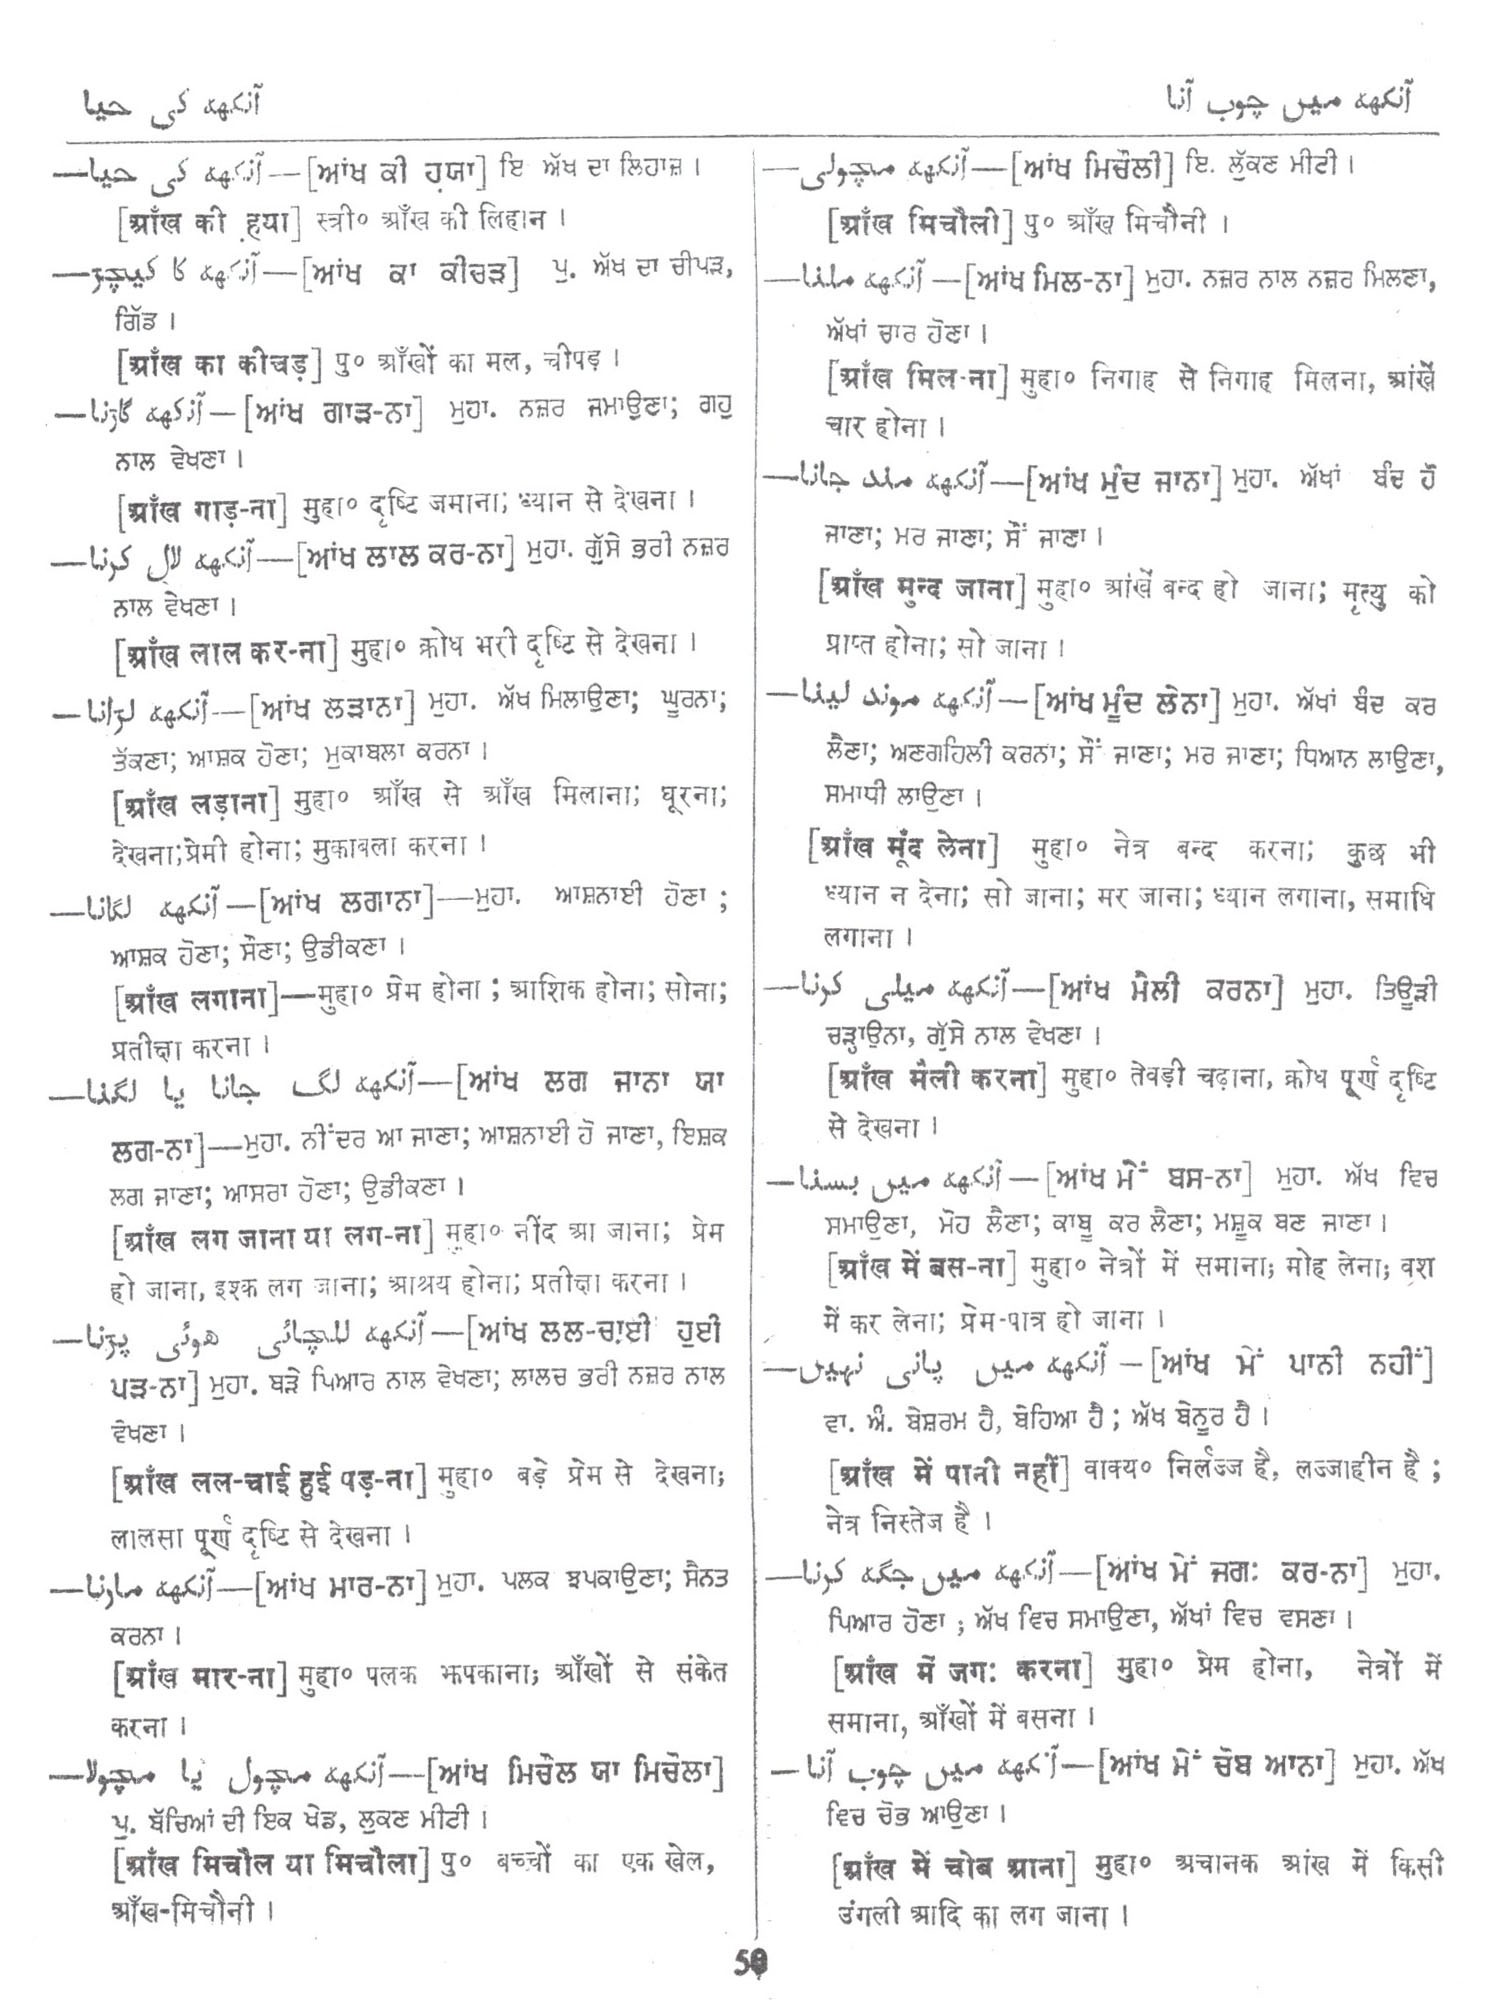 آنکھ کی حیا
آنکھ میں چوب آنا
—آنکھ کی حیا—[ਆਂਖ ਕੀ ਹ਼ਯਾ] ਇ ਅੱਖ ਦਾ ਲਿਹਾਜ਼।
[आँख की ह़या] स्त्री॰ आँख की लिहान।
—آنکھ کا کیچڑ—[ਆਂਖ ਕਾ ਕੀਚੜ] ਪੁ. ਅੱਖ ਦਾ ਚੀਪੜ,
ਗਿੱਡ।
[आँख का कीचड़] पु॰ आँखों का मल, चीपड़।
—آنکھ گاڑنا—[ਆਂਖ ਗਾੜ-ਨਾ] ਮੁਹਾ. ਨਜ਼ਰ ਜਮਾਉਣਾ; ਗਹੁ
ਨਾਲ ਵੇਖਣਾ।
[आँख गाड़-ना] मुहा॰ दृष्टि जमाना; ध्यान से देखना।
—آنکھ لال کرنا—[ਆਂਖ ਲਾਲ ਕਰ-ਨਾ] ਮੁਹਾ. ਗੁੱਸੇ ਭਰੀ ਨਜ਼ਰ
ਨਾਲ ਵੇਖਣਾ।
[आँख लाल कर-ना] मुहा॰ क्रोध भरी दृष्टि से देखना।
—آنکھ لڑانا—[ਆਂਖ ਲੜਾਨਾ] ਮੁਹਾ. ਅੱਖ ਮਿਲਾਉਣਾ; ਘੂਰਨਾ;
ਤੱਕਣਾ; ਆਸ਼ਕ ਹੋਣਾ; ਮੁਕਾਬਲਾ ਕਰਨਾ।
[आँख लड़ाना] मुहा॰ आँख से आँख मिलाना; घूरना;
देखना;प्रेमी होना; मुकाबला करना।
—آنکھ لگانا—[ਆਂਖ ਲਗਾਨਾ]—ਮੁਹਾ. ਆਸ਼ਨਾਈ ਹੋਣਾ;
ਆਸ਼ਕ ਹੋਣਾ; ਸੌਣਾ; ਉਡੀਕਣਾ।
[आँख लगाना]—मुहा॰ प्रेम होना; आशिक होना; सोना;
प्रतीक्षा करना।
—آنکھ لگ جانا یا لگنا—[ਆਂਖ ਲਗ ਜਾਨਾ ਯਾ
ਲਗ-ਨਾ]—ਮੁਹਾ. ਨੀਂਦਰ ਆ ਜਾਣਾ; ਆਸ਼ਨਾਈ ਹੋ ਜਾਣਾ, ਇਸ਼ਕ
ਲਗ ਜਾਣਾ; ਆਸਰਾ ਹੋਣਾ; ਉਡੀਕਣਾ।
[आँख लग जाना या लग-ना] मुहा॰ नींद आ जाना; प्रेम
हो जाना, इश्क लग जाना; आश्रय होना; प्रतीक्षा करना।
—آنکھ للچائی ہوئی پڑنا—[ਆਂਖ ਲਲ-ਚਾਈ ਹੁਈ
ਪੜ-ਨਾ] ਮੁਹਾ. ਬੜੇ ਪਿਆਰ ਨਾਲ ਵੇਖਣਾ; ਲਾਲਚ ਭਰੀ ਨਜ਼ਰ ਨਾਲ
ਵੇਖਣਾ।
[आँख लल-चाई हुई पड़-ना] मुहा॰ बड़े प्रेम से देखना;
लालसा पूर्ण दृष्टि से देखना।
—آنکھ مارنا—[ਆਂਖ ਮਾਰ-ਨਾ] ਮੁਹਾ. ਪਲਕ ਝਪਕਾਉਣਾ; ਸੈਨਤ
ਕਰਨਾ।
[आँख मार-ना] मुहा॰ पलक झपकाना; आँखों से संकेत
करना।
—آنکھ مچول یا مچولا—[ਆਂਖ ਮਿਚੌਲ ਯਾ ਮਿਚੌਲਾ]
ਪੁ. ਬੱਚਿਆਂ ਦੀ ਇਕ ਖੇਡ, ਲੁਕਣ ਮੀਟੀ।
[आँख मिचौल या मिचौला] पु॰ बच्चों का एक खेल,
आँख-मिचौनी।
—آنکھ مچولی—[ਆਂਖ ਮਿਚੌਲੀ] ਇ. ਲੁੱਕਣ ਮੀਟੀ।
[आँख मिचौली] पु॰ आँख मिचौनी।
—آنکھ ملنا—[ਆਂਖ ਮਿਲ-ਨਾ] ਮੁਹਾ. ਨਜ਼ਰ ਨਾਲ ਨਜ਼ਰ ਮਿਲਣਾ,
ਅੱਖਾਂ ਚਾਰ ਹੋਣਾ।
[आँख मिल-ना] मुहा॰ निगाह से निगाह मिलना, आंखें
चार होना।
—آنکھ مند جانا—[ਆਂਖ ਮੁੰਦ ਜਾਨਾ] ਮੁਹਾ. ਅੱਖਾਂ ਬੰਦ ਹੋ
ਜਾਣਾ; ਮਰ ਜਾਣਾ; ਸੌਂ ਜਾਣਾ।
[आँख मुन्द जाना] मुहा॰ आंखें बन्द हो जाना; मृत्यु को
प्राप्त होना; सो जाना।
—آنکھ موند لینا—[ਆਂਖ ਮੂੰਦ ਲੇਨਾ] ਮੁਹਾ. ਅੱਖਾਂ ਬੰਦ ਕਰ
ਲੈਣਾ; ਅਣਗਹਿਲੀ ਕਰਨਾ; ਸੌਂ ਜਾਣਾ; ਮਰ ਜਾਣਾ; ਧਿਆਨ ਲਾਉਣਾ,
ਸਮਾਧੀ ਲਾਉਣਾ।
[आँख मूंद लेना] मुहा॰ नेत्र बन्द करना; कुछ भी
ध्यान न देना; सो जाना; मर जाना; ध्यान लगाना, समाधि
लगाना।
—آنکھ میلی کرنا—[ਆਂਖ ਮੈਲੀ ਕਰਨਾ] ਮੁਹਾ. ਤਿਊੜੀ
ਚੜ੍ਹਾਉਨਾ, ਗੁੱਸੇ ਨਾਲ ਵੇਖਣਾ।
[आँख मैली करना] मुहा॰ तेवड़ी चढ़ाना, क्रोध पूर्ण दृष्टि
से देखना।
—آنکھ میں بسنا—[ਆਂਖ ਮੇਂ ਬਸ-ਨਾ] ਮੁਹਾ. ਅੱਖ ਵਿਚ
ਸਮਾਉਣਾ, ਮੋਹ ਲੈਣਾ; ਕਾਬੂ ਕਰ ਲੈਣਾ; ਮਸ਼ੂਕ ਬਣ ਜਾਣਾ।
[आँख में बस-ना] मुहा॰ नेत्रों में समाना; मोह लेना; वश
में कर लेना; प्रेम-पात्र हो जाना।
—آنکھ میں پانی نہیں—[ਆਂਖ ਮੇਂ ਪਾਨੀ ਨਹੀਂ]
ਵਾ. ਅੰ. ਬੇਸ਼ਰਮ ਹੈ, ਬੇਹਿਆ ਹੈ; ਅੱਖ ਬੇਨੂਰ ਹੈ।
[आँख में पानी नहीं] वाक्य॰ निर्लज्ज है, लज्जाहीन है;
नेत्र निस्तेज है।
—آنکھ میں جگہ کرنا—[ਆਂਖ ਮੇਂ ਜਗ: ਕਰ-ਨਾ] ਮੁਹਾ.
ਪਿਆਰ ਹੋਣਾ; ਅੱਖ ਵਿਚ ਸਮਾਉਣਾ, ਅੱਖਾਂ ਵਿਚ ਵਸਣਾ।
[आँख में जग: करना] मुहा॰ प्रेम होना, नेत्रों में
समाना, आँखों में बसना।
—آنکھ میں چوب آنا—[ਆਂਖ ਮੇਂ ਚੋਬ ਆਨਾ] ਮੁਹਾ. ਅੱਖ
ਵਿਚ ਚੋਭ ਆਉਣਾ।
[आँख में चोब आना] मुहा॰ अचानक आंख में किसी
उंगली आदि का लग जाना।